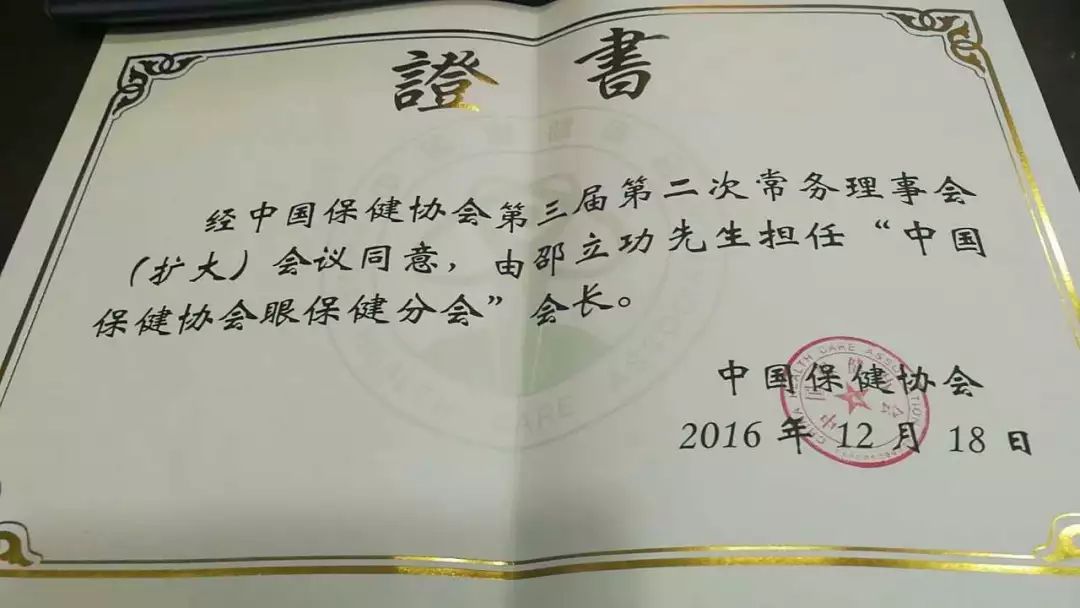 證書
经中国保健协会第三届第二次常务理事会
（扩大）会议同意，由邵立功先生担任“中国
保健协会眼保健分会”会长。
中国保健协会
2016 年 12 月 18 日
CHINA HEALTH CARE ASSOCIATION
中国保健协会